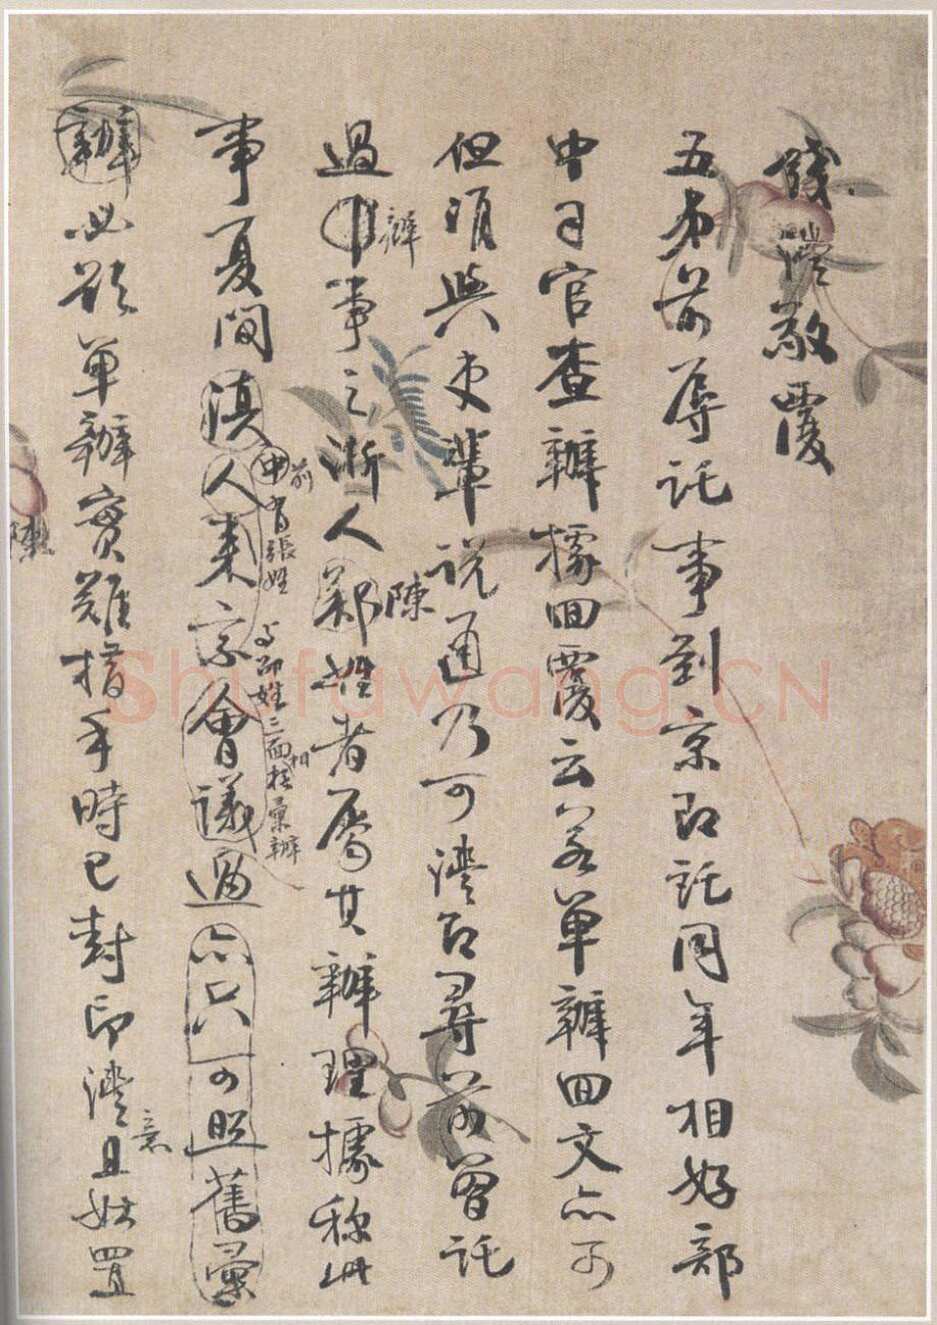 錢灃敬覆
五弟前辱託事到京即託同年相好部
中司官查辦據回覆云若單辦回文亦可
但須與吏輩說通乃可灃即尋前曾託
過辦事之浙人鄭陳姓者屬其辦理據称此
事夏間滇人來京會議過亦只可照舊彙
前中書張姓
與邵姓三面相彙辦
辦必欲單辦實難措手時已封印灃意且姑置
Shufawang.CN